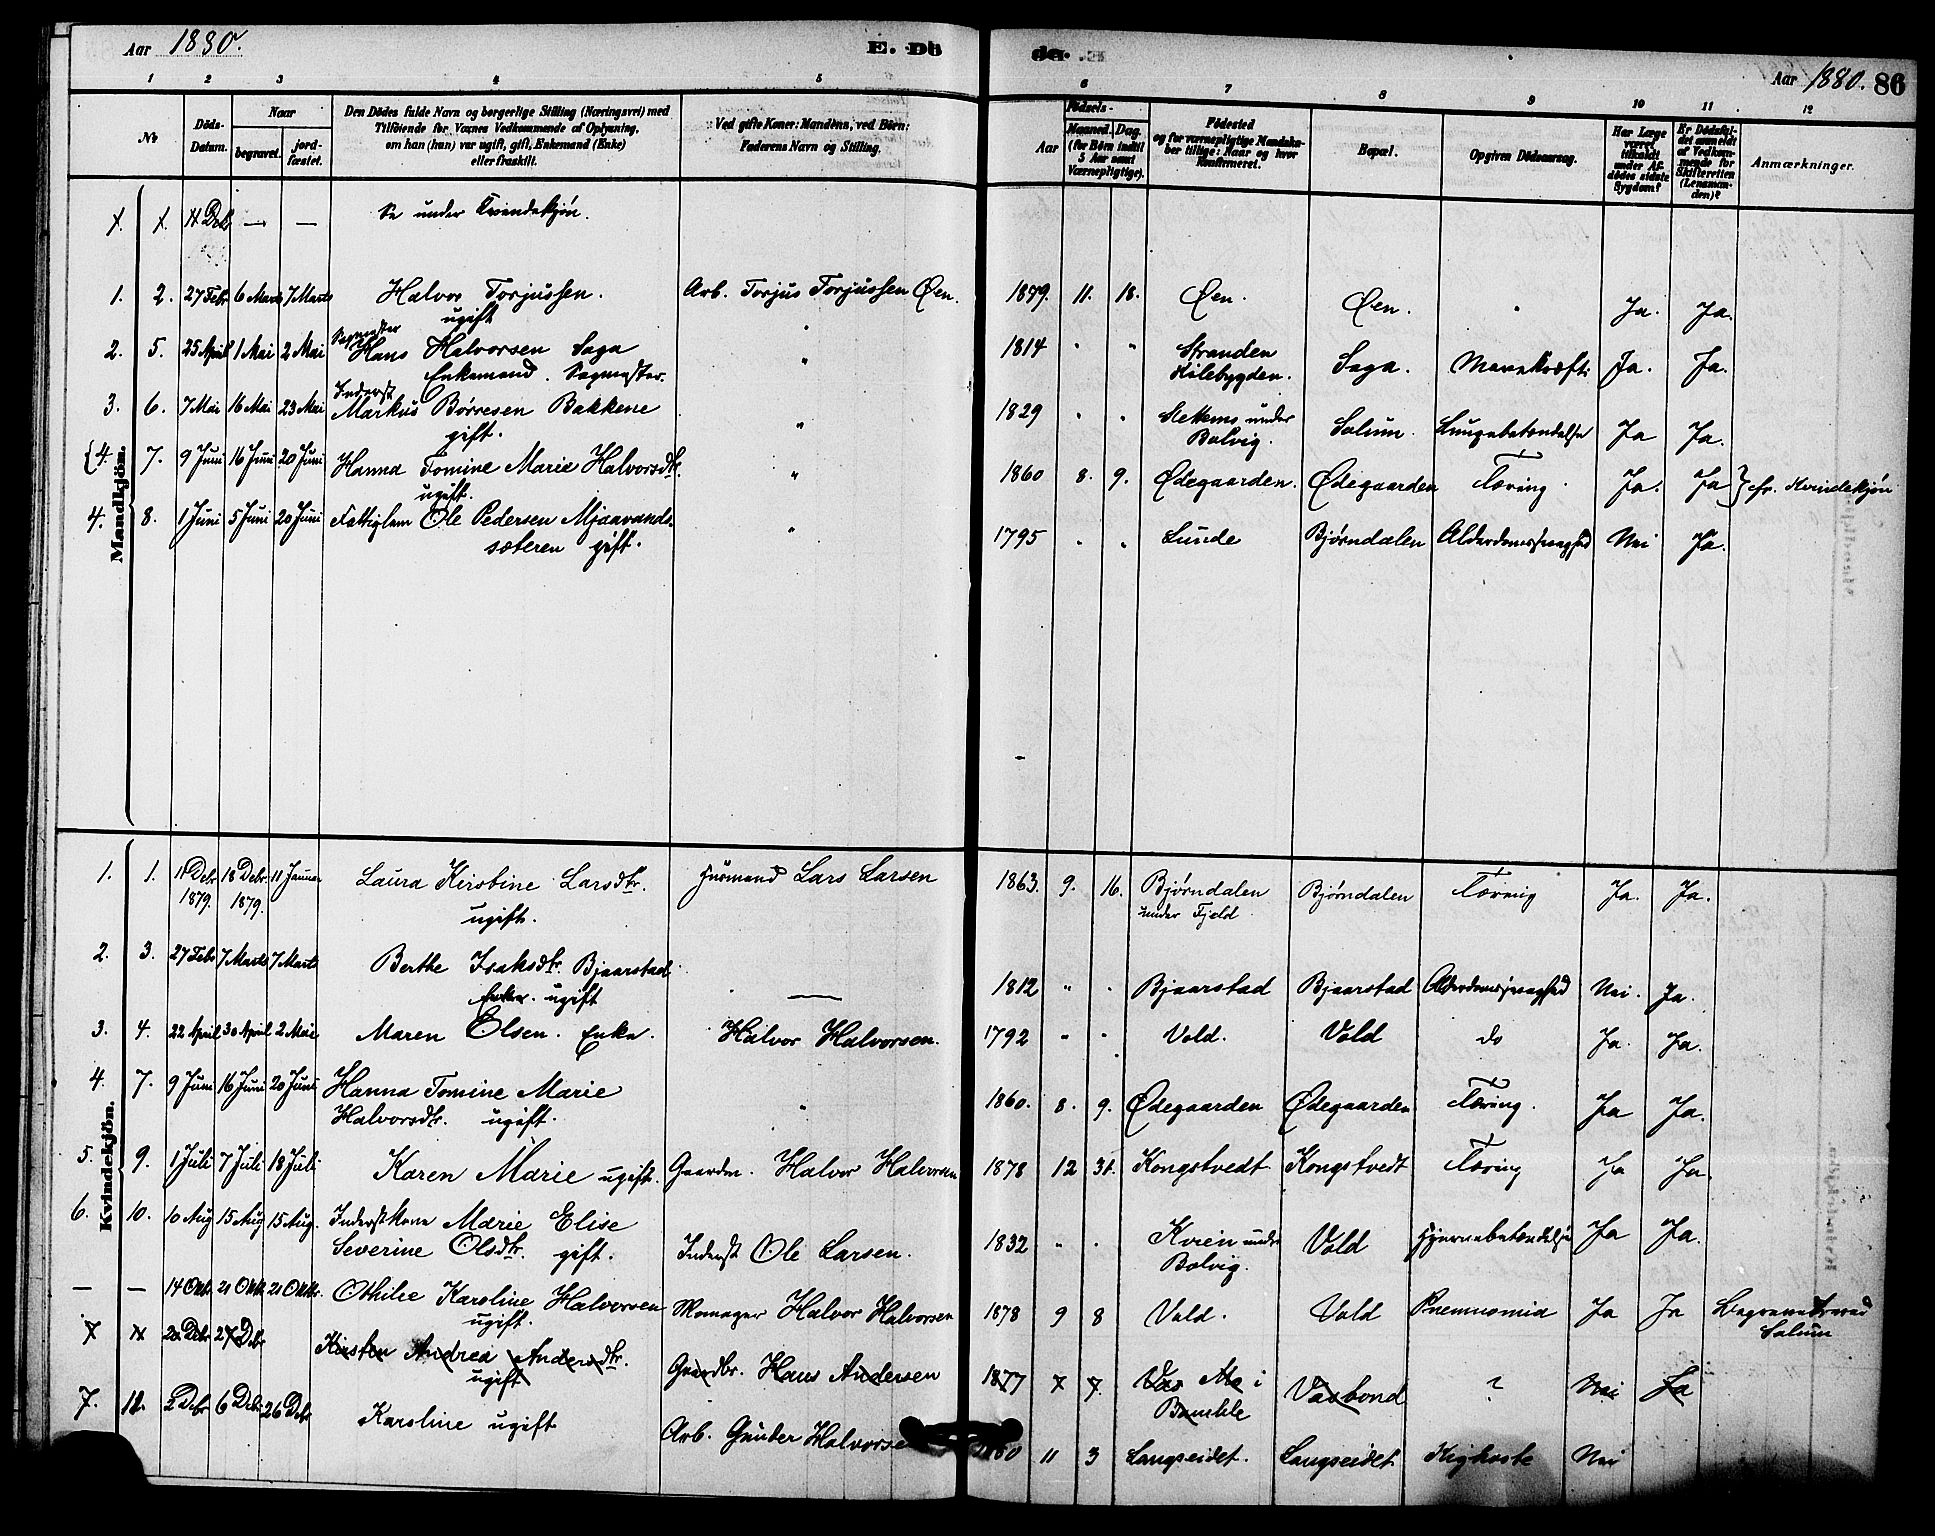 Aar 1880.
E. Dö
1 2 3 4 5
No
Döds-Datum.
Naar
begravet.
jord-fæstet.
Den Dödes fulde Navn og borgerlige Stilling (Næringsvei) med
Tilföiende for Voxnes Vedkommende af Oplysning,
om han (hun) var ugift, gift, Enkemand (Enke)
eller fraskilt.
Ved gifte Koner: Mandens, ved Börn:
Faderens Navn og Stilling.
de. E.
Aar 1880. 86
6 7 8 9 10 11 12
Aar
Födsels-
Maaned. Dag.
(for Börn indtil
5 Aar samt
Værnepligtige).
Födested
og for værnepligtige Mandskaber tillige: Naar og hvor
Konfirmeret.
Bopæl.
Opgiven Dödsaarsag.
Har Læge
været
tilkaldt
under Afdödes sidste
Sygdom?
Er Dödsfaldet anmeldt
af Vedkommende for
Skifteretten
(Lensmanden)?
Anmærkninger.
Mandkjön.
1. 1. 11 Debr — — Se under Kvindekjön.
1. 2. 27 Febr 6 Marts 7 Marts Halvor Torjussen. Arb. Torjus Torjussen Øen. 1879. 11. 18. Øen. Øen. " Ja. Ja.
ugift
2. 5. 25 April 1 Mai 2 Mai Sagmester Hans Halvorsen Saga " 1814 " " Stranden Saga. Marekræft. Ja. Ja.
Enkemand. Sagmester. Kilebygden.
3. 6. 7 Mai 16 Mai 23 Mai Inderst Markus Börresen Bakkene " 1829 " " Slettems under Solum. Lungebetændelse Ja Ja.
gift. Bolvig.
4. 7. 9 Juni 16 Juni 20 Juni Hanna Tomine Marie Halvorsdtr. " 1860 8. 9. Ødegaarden. Ødegaarden Tæring. Ja. Ja cfr. Kvindekjön
ugift.
4. 8. 1 Juni 5 Juni 20 Juni Fattiglem Ole Pedersen Mjaavands- " 1795 " " Lunde Bjørndalen Alderdomssvaghed Nei Ja.
sæteren gift.
Kvindekjön.
1. 1. 11 Debr 18 Debr 11 Januar Laura Kirstine Larsdtr. Husmand Lars Larsen 1863. 9. 16. Bjørndalen Bjørndalen Tæring Ja. Ja.
1879. 1879. ugift. under Fjeld
2. 3. 27 Febr 7 Marts 7 Marts Berthe Isaksdtr. Bjaarstad — 1812 " " Bjaarstad Bjaarstad Alderdomssvaghed Nei. Ja.
Enke. ugift
3. 4. 22 April 30 April 2 Mai Maren Olsen. Enke. Halvor Halvorsen. 1792 " " Vold. Vold do Ja. Ja.
4. 7. 9 Juni 16 Juni 20 Juni Hanna Tomine Marie " 1860. 8. 9. Ødegaarden Ødegaarden Tæring. Ja Ja.
Halvorsdtr. ugift.
5. 9. 1 Juli 7 Juli 18 Juli Karen Marie ugift. Gaardm. Halvor Halvorsen 1878 12 31. Kongstvedt Kongstvedt Tæring Ja Ja.
6. 10. 10 Aug 15 Aug 15 Aug. Inderstkone Marie Elise Inderst Ole Larsen. 1832 " " Kvien under Vold Hjernebetændelse Ja Ja.
Severine Olsdtr. gift. Bolvig.
— — 14 Okt. 21 Okt. 21 Oktr. Othilie Karoline Halvorsen Halvor Halvorsen 1878 9 8 Vold. Vold Pneumonia Ja Ja Begravet ved
ugift. Solum
7 11 20 Debr 27 Debr Kirsten Andrea Andersdtr. Gaardbr. Hans Andersen 1877 7 7. Vas Me i Vasbond ? Nei Ja
ugift Bamble
7. 12. 2 Debr 6 Debr 26 Debr Karoline ugift Arb. Gunder Halvorse 11 3 Langseidet. Langseidet Kighoste Nei